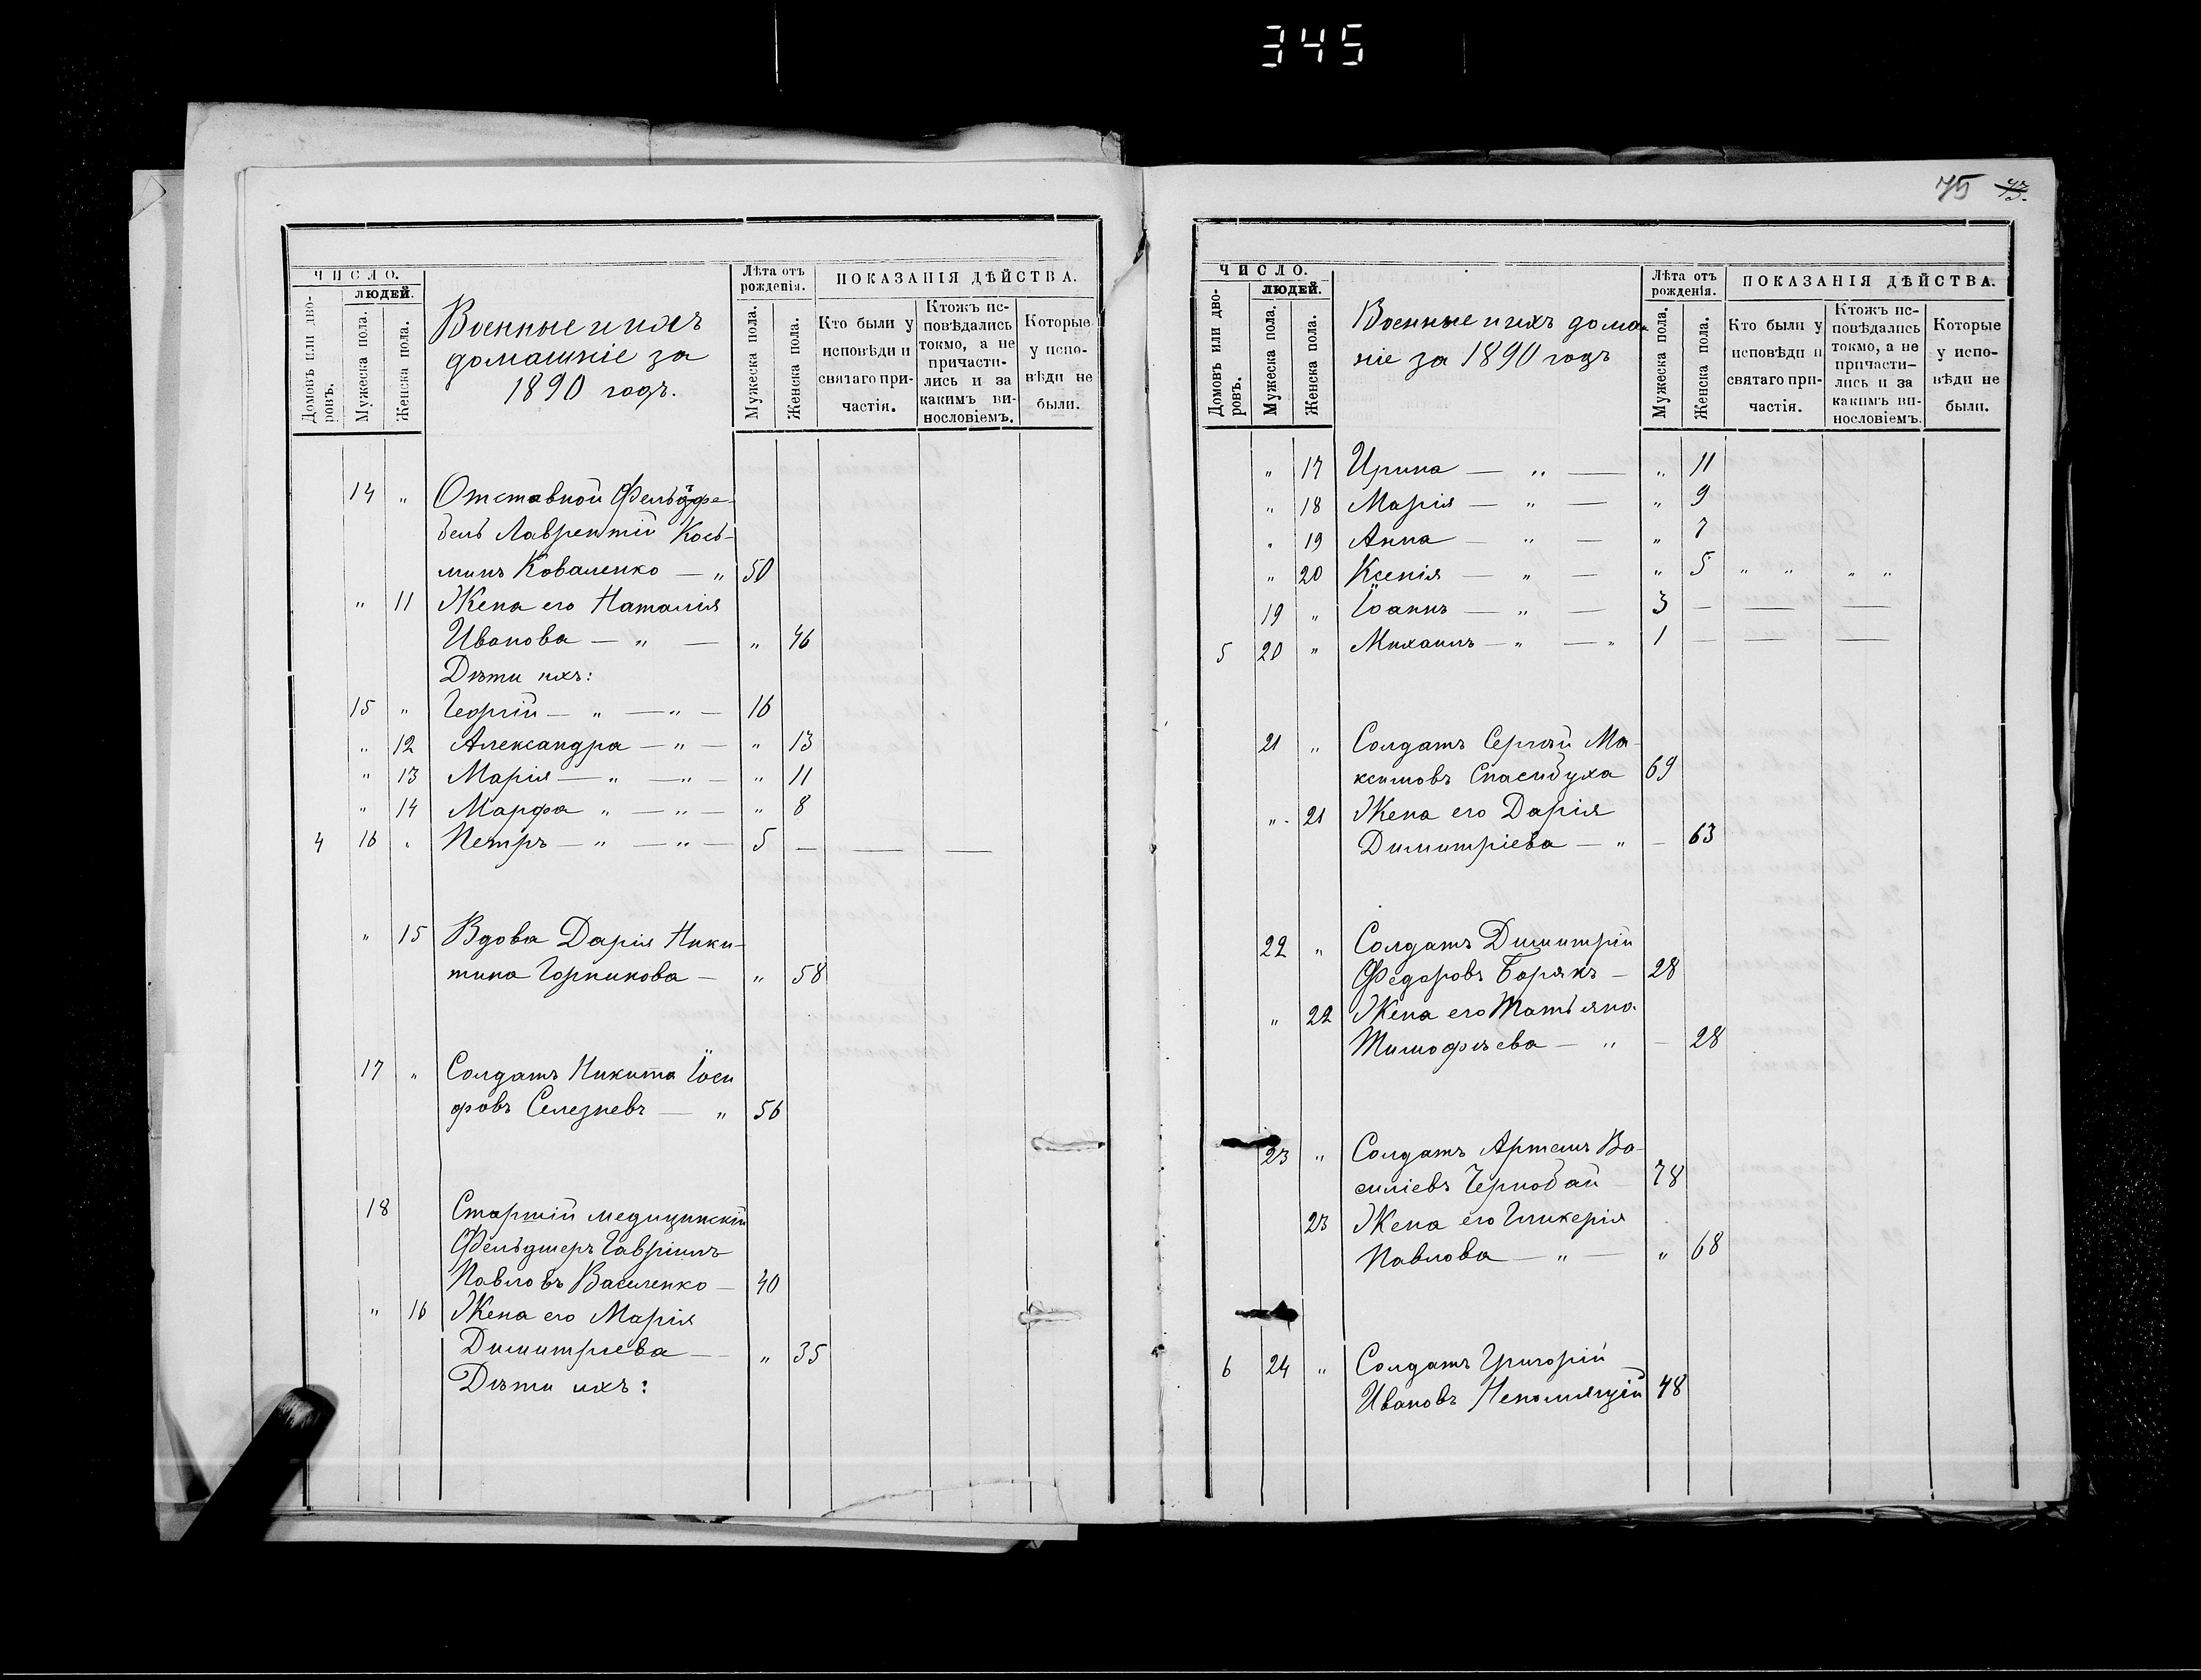 345
ЧИСЛО.
Домовъ или дворовъ.
ЛЮДЕЙ.
Мужеска пола.
Женска пола.
Военные и ихъ
домашніе за
1890 годъ.
Лѣта отъ
рожденія.
Мужеска пола.
Женска пола.
ПОКАЗАНІЯ ДѢЙСТВА.
Кто были у
исповѣди и
святаго при-
частія.
Ктожъ ис-
повѣдались
токмо, а не
причасти-
лись и за
какимъ ви-
нословіемъ.
Которые
у испо-
вѣди не
были.
14 " Отставной Фельдфе-
бель Лаврентій Кось-
минъ Коваленко — " 50
" 11 Жена его Наталія
Иванова — " — " 46
Дѣти ихъ:
15 " Георгій — " — " — 16
" 12 Александра — " — " 13
" 13 Марія — " — " — " 11
" 14 Марфа " — " — " 8
4 16 " Петръ — " — " — 5 — — —
" 15 Вдова Дарія Ники-
тина Горникова — " 58
17 " Солдатъ Никита Іоси
фовъ Селезневъ — " 56
18 Старшій медицинскій
Фельдшеръ Гавріилъ
Павловъ Василенко — 40
" 16 Жена его Марія
Димитріева — " 35
Дѣти ихъ:
75 73.
ЧИСЛО.
Домовъ или дво-
ровъ.
ЛЮДЕЙ.
Мужеска пола.
Женска пола.
Военные и ихъ дома
ніе за 1890 годъ
Лѣта отъ
рожденія.
Мужеска пола.
Женска пола.
ПОКАЗАНІЯ ДѢЙСТВА.
Кто были у
исповѣди и
святаго при-
частія.
Ктожъ ис-
повѣдались
токмо, а не
причасти-
лись и за
какимъ ви-
нословіемъ.
Которые
у испо-
вѣди не
были.
" 17 Ирина — " — " 11
" 18 Марія — " — " 9
" 19 Анна — " — " 7
" 20 Ксенія — " — " 5 " " " "
19 " Іоаннъ — " — 3 — — —
5 20 " Михаилъ — " — " 1 — — —
21 " Солдатъ Сергѣй Ма-
ксимовъ Спасибуха 69
" 21 Жена его Дарія
Димитріева — " — 63
22 " Солдатъ Димитрій
Федоровъ Борякъ — 28
" 22 Жена его Татьяна
Тимофѣева — " — 28
23 " Солдатъ Артемъ Ва-
силіевъ Чернобай 78
23 Жена его Гликерія
Павлова — " — " 68
6 24 " Солдатъ Григорій
Ивановъ Непомлящій 48